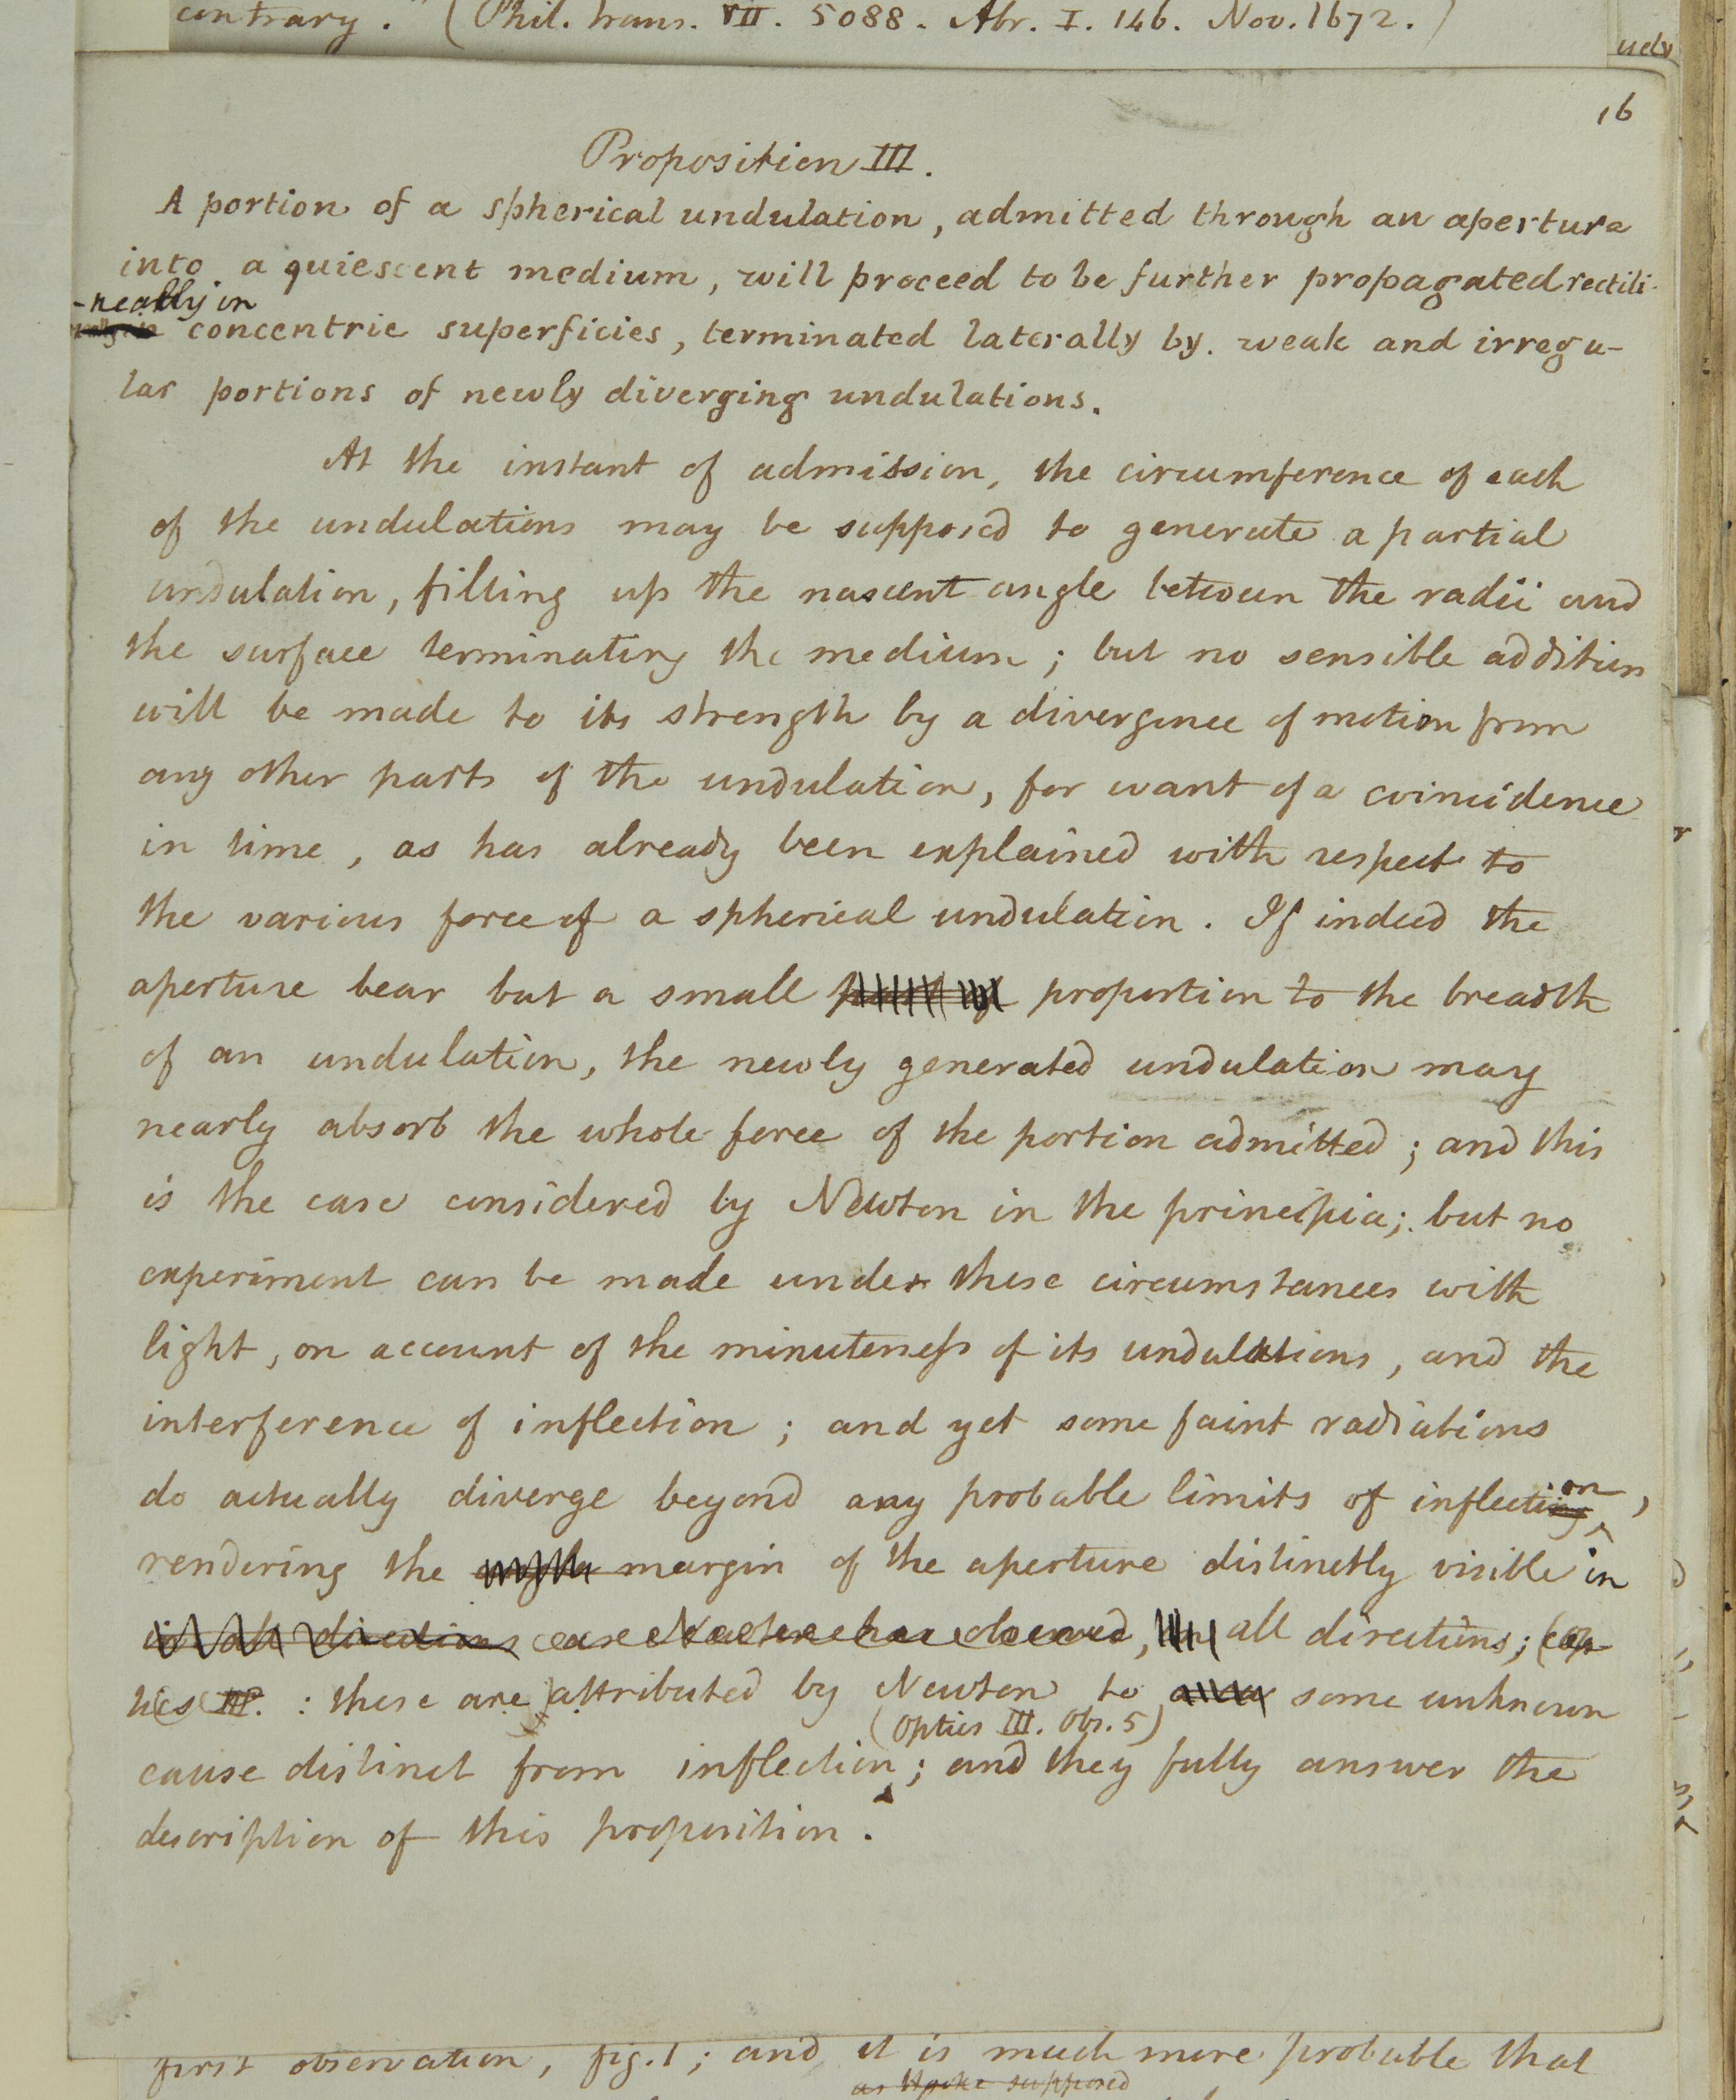 contrary." (Phil. trans. VII. 5088. Abr. I. 146. Nov. 1672.)
16
Proposition III.
A portion of a spherical undulation, admitted through an aperture
into a quiescent medium, will proceed to be further propagated rectili-
-neally in
concentric superficies, terminated laterally by weak and irregu-
lar portions of newly diverging undulations.
At the instant of admission, the circumference of each
of the undulations may be supposed to generate a partial
undulation, filling up the nascent angle between the radii and
the surface terminating the medium; but no sensible addition
will be made to its strength by a divergence of motion from
any other parts of the undulation, for want of a coincidence
in time, as has already been explained with respect to
the various force of a spherical undulation. If indeed the
aperture bear but a small proportion to the breadth
of an undulation, the newly generated undulation may
nearly absorb the whole force of the portion admitted; and this
is the case considered by Newton in the principia; but no
experiment can be made under these circumstances with
light, on account of the minuteness of its undulations, and the
interference of inflection; and yet some faint radiations
do actually diverge beyond any probable limits of inflection,
rendering the margin of the aperture distinctly visible in
in all directions as Newton has observed, all directions; (op
tics III. : these are attributed by Newton to some unknown
(Optics III. Obs. 5)
cause distinct from inflection; and they fully answer the
description of this proposition.
first observation, fig. 1; and it is much more probable that
as Hooke supposed